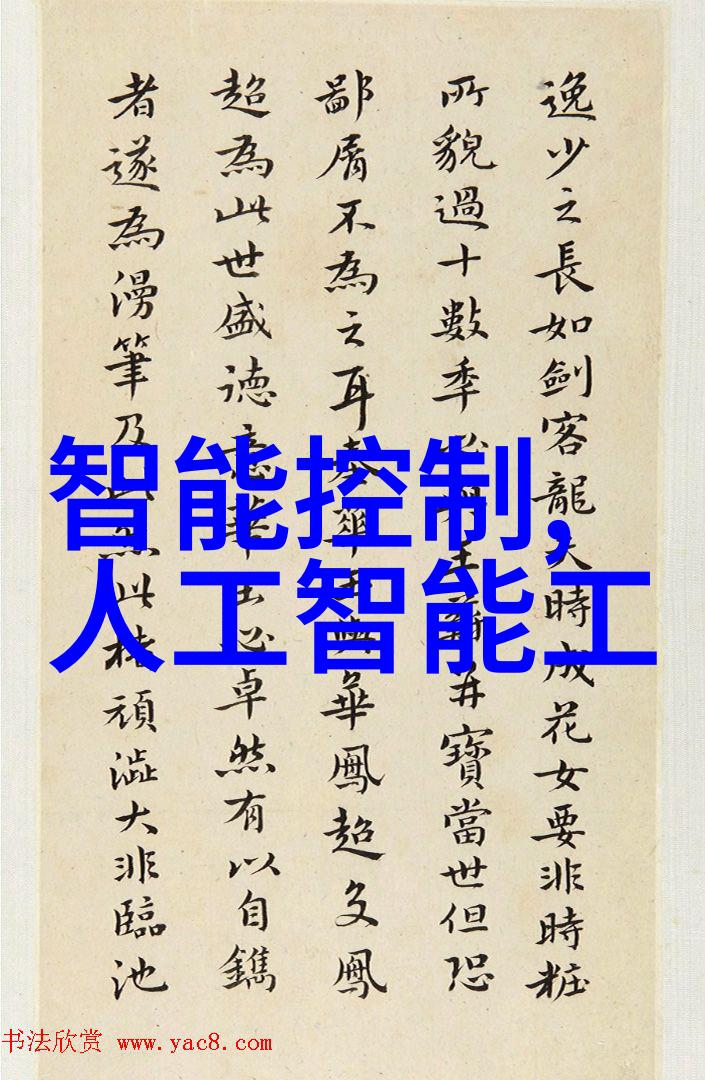 逸少之長如劍客龍大時成花女要非時粧
所貌過十數季必并寶當世但恐
鄙屑不為之耳華鳳超文鳳
超為此世盛德意華玉必卓然有以自鐫
者遂為漫筆及此楮頑澁大非臨池
智能控制,
人工智能工
书法欣赏 www.yac8.com